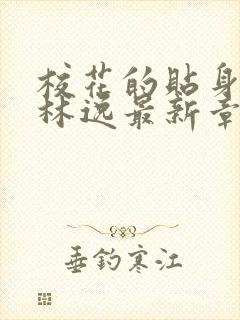 校花的贴身
林逸最新章
垂钓寒江